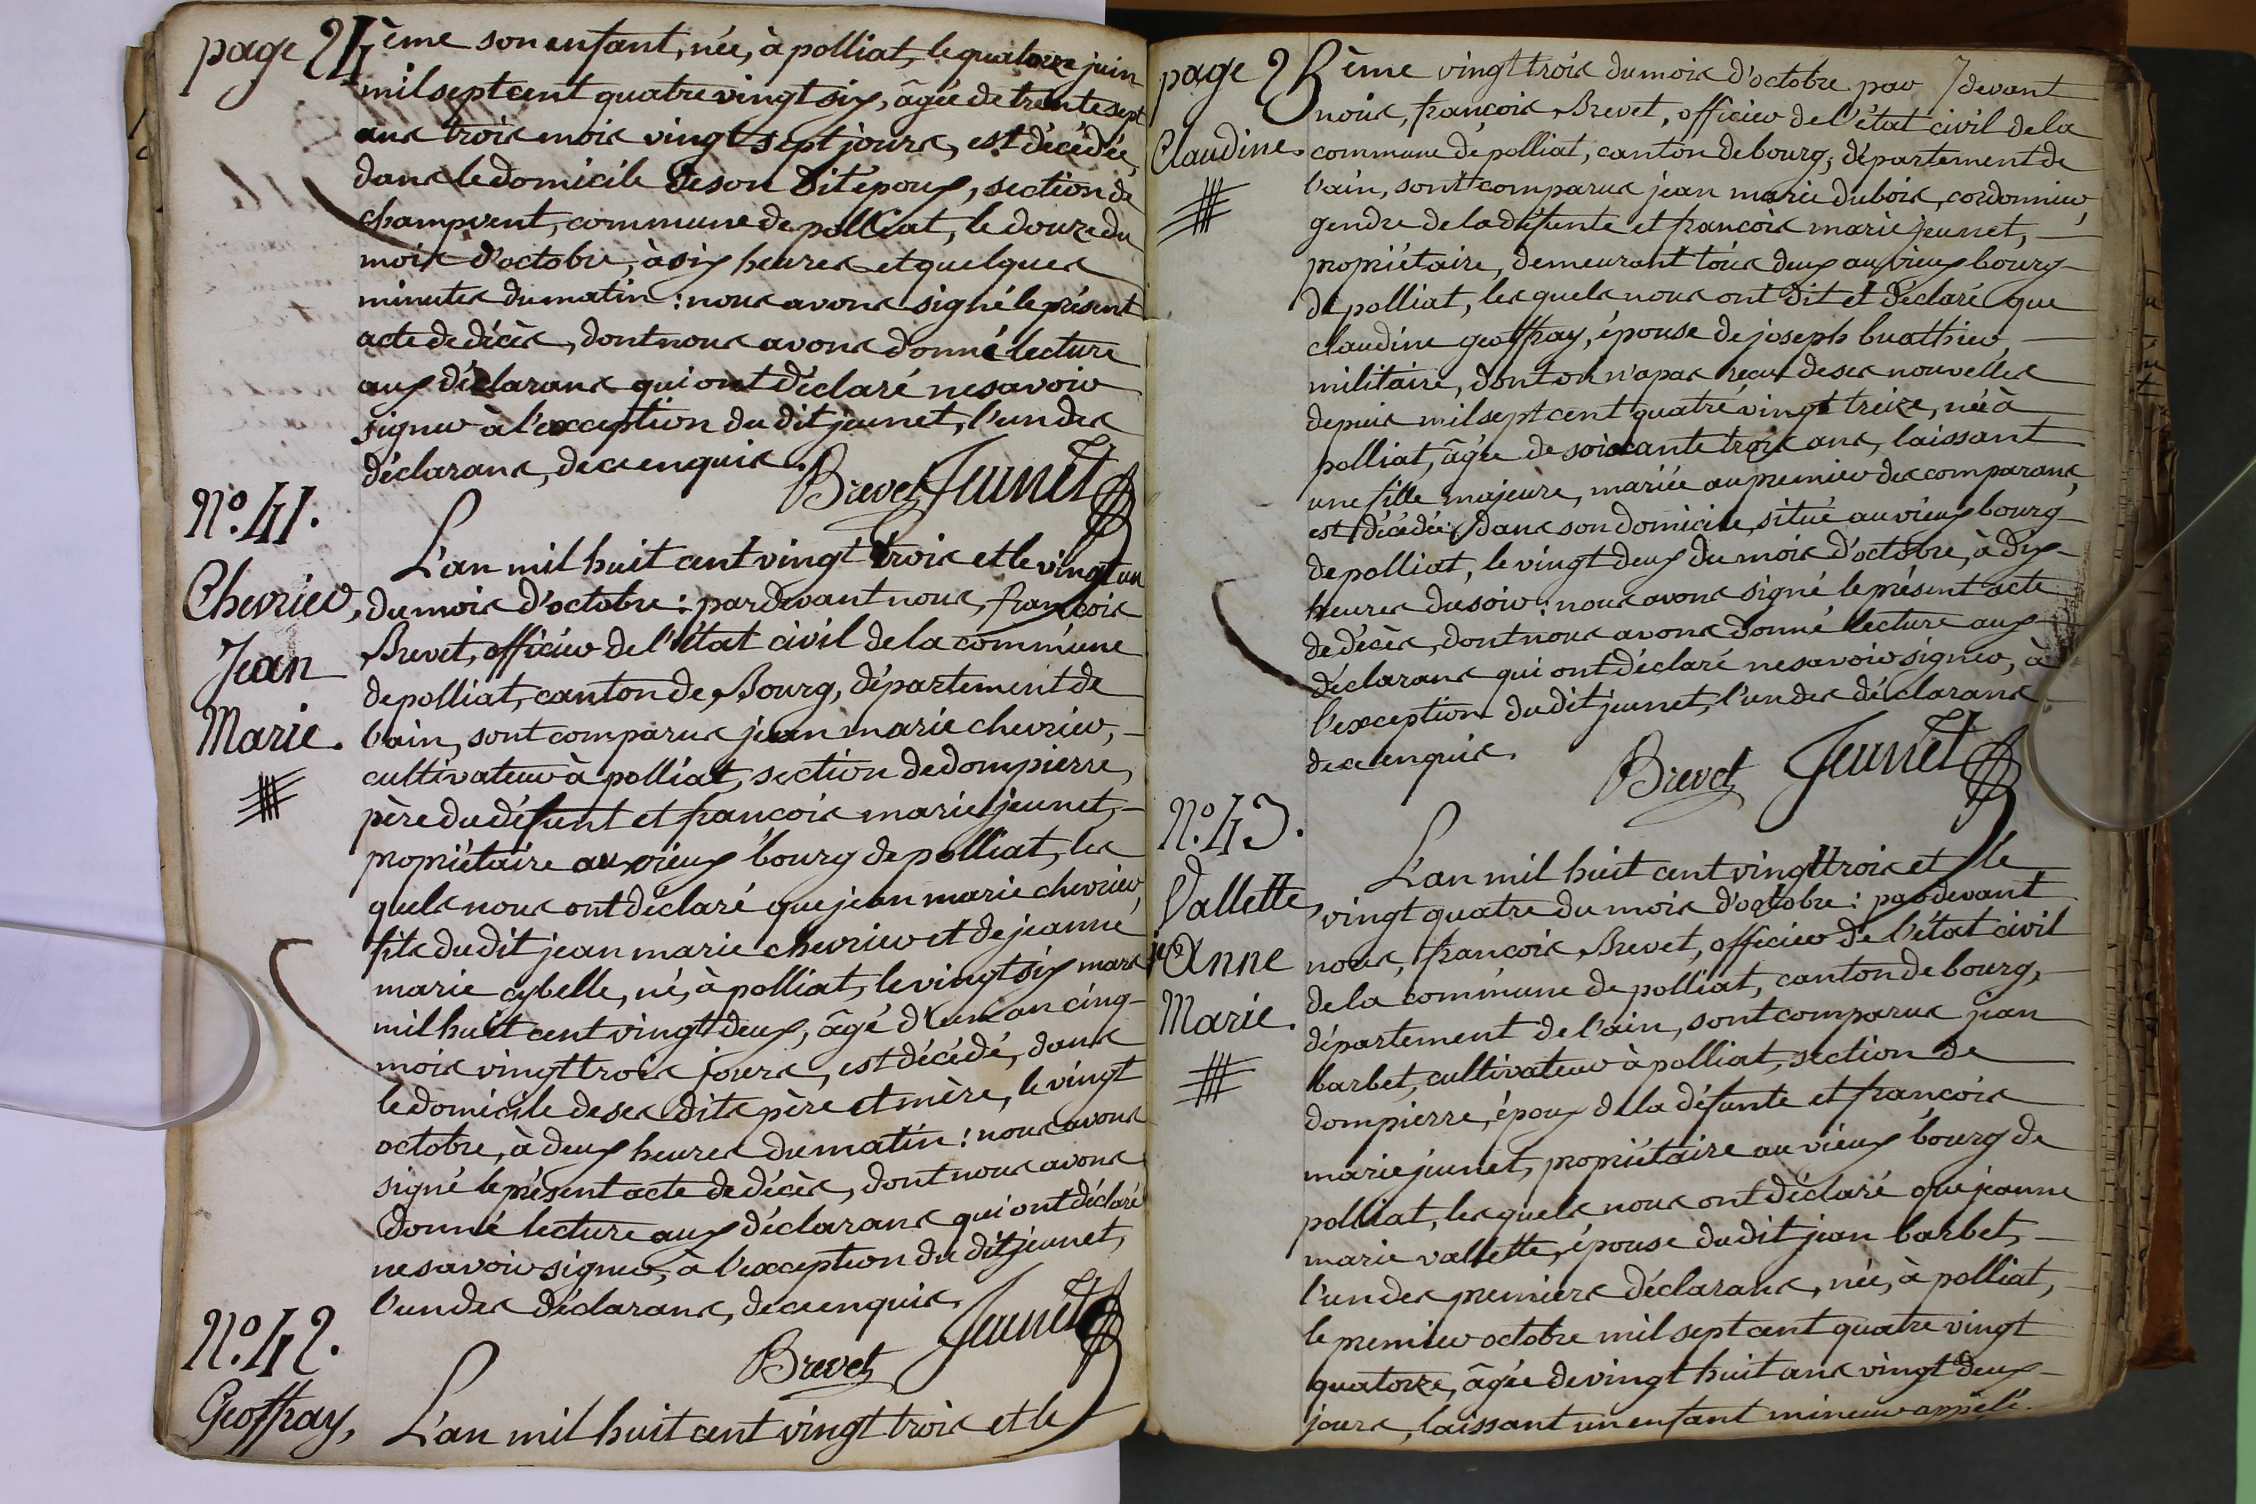 page 24ème son enfant, née, à polliat, le quatorze juin
mil sept cent quatre vingt six, âgée de trente sept
ans trois mois vingt sept jours, est décédée,
dans le domicile de son dit époux, section de
champvent, commune de polliat, le douze du
mois d'octobre, à six heures et quelques
minutes du matin : nous avons signé le présent
acte de décès, dont nous avons donné lecture
aux déclarans qui ont déclaré ne savoir
signer à l'exception du dit jeunet, l'un des
déclarans, de ce enquis.
Brevet Jeunet
N.º 41.
Chevrier,
Jean
Marie.
L'an mil huit cent vingt trois et le vingt un
du mois d'octobre : pardevant nous, françois
Brevet, officier de l'état civil de la commune
de polliat, canton de Bourg, département de
l'ain, sont comparus jean marie chevrier,
cultivateur à polliat, section de dompierre,
père du défunt et françois marie jeunet,
propriétaire au vieux bourg de polliat, les
quels nous ont déclaré que jean marie chevrier,
fils du dit jean marie chevrier et de jeanne
marie cybelle, né, à polliat, le vingt six mars
mil huit cent vingt deux, âgé d'un an cinq
mois vingt trois jours, est décédé, dans
le domicile de ses dits père et mère, le vingt
octobre, à deux heures du matin : nous avons
signé le présent acte de décès, dont nous avons
donné lecture aux déclarans qui ont déclaré
ne savoir signer, à l'exception du dit jeunet,
l'un des déclarans, de ce enquis.
Brevet Jeunet
N.º 42.
Geoffray,
L'an mil huit cent vingt trois et le
page 25ème vingt trois du mois d'octobre par devant
Claudine.
nous, françois Brevet, officier de l'état civil de la
commune de polliat, canton de bourg, département de
l'ain, sont comparus jean marie dubois, cordonnier,
gendre de la défunte et françois marie jeunet,
propriétaire, demeurant tous deux au vieux bourg
de polliat, les quels nous ont dit et déclaré que
claudine geoffray, épouse de joseph buathier,
militaire, dont on n'a pas reçu de ses nouvelles
depuis mil sept cent quatre vingt treize, née à
polliat, âgée de soixante trois ans, laissant
une fille majeure, mariée au premier des comparans,
est décédée, dans son domicile, situé au vieux bourg
de polliat, le vingt deux du mois d'octobre, à dix
heures du soir : nous avons signé le présent acte
de décès, dont nous avons donné lecture aux
déclarans qui ont déclaré ne savoir signer, à
l'exception du dit jeunet, l'un des déclarans
de ce enquis.
Brevet Jeunet
N.º 43.
Vallette,
je Anne
Marie.
L'an mil huit cent vingt trois et le
vingt quatre du mois d'octobre : par devant
nous, françois Brevet, officier de l'état civil
de la commune de polliat, canton de bourg,
département de l'ain, sont comparus jean
barbet, cultivateur à polliat, section de
dompierre, époux de la défunte et françois
marie jeunet, propriétaire au vieux bourg de
polliat, les quels nous ont déclaré que jeanne
marie vallette, épouse du dit jean barbet,
l'un des premiers déclarans, née, à polliat,
le premier octobre mil sept cent quatre vingt
quatorze, âgée de vingt huit ans vingt deux
jours, laissant un enfant mineur appelé